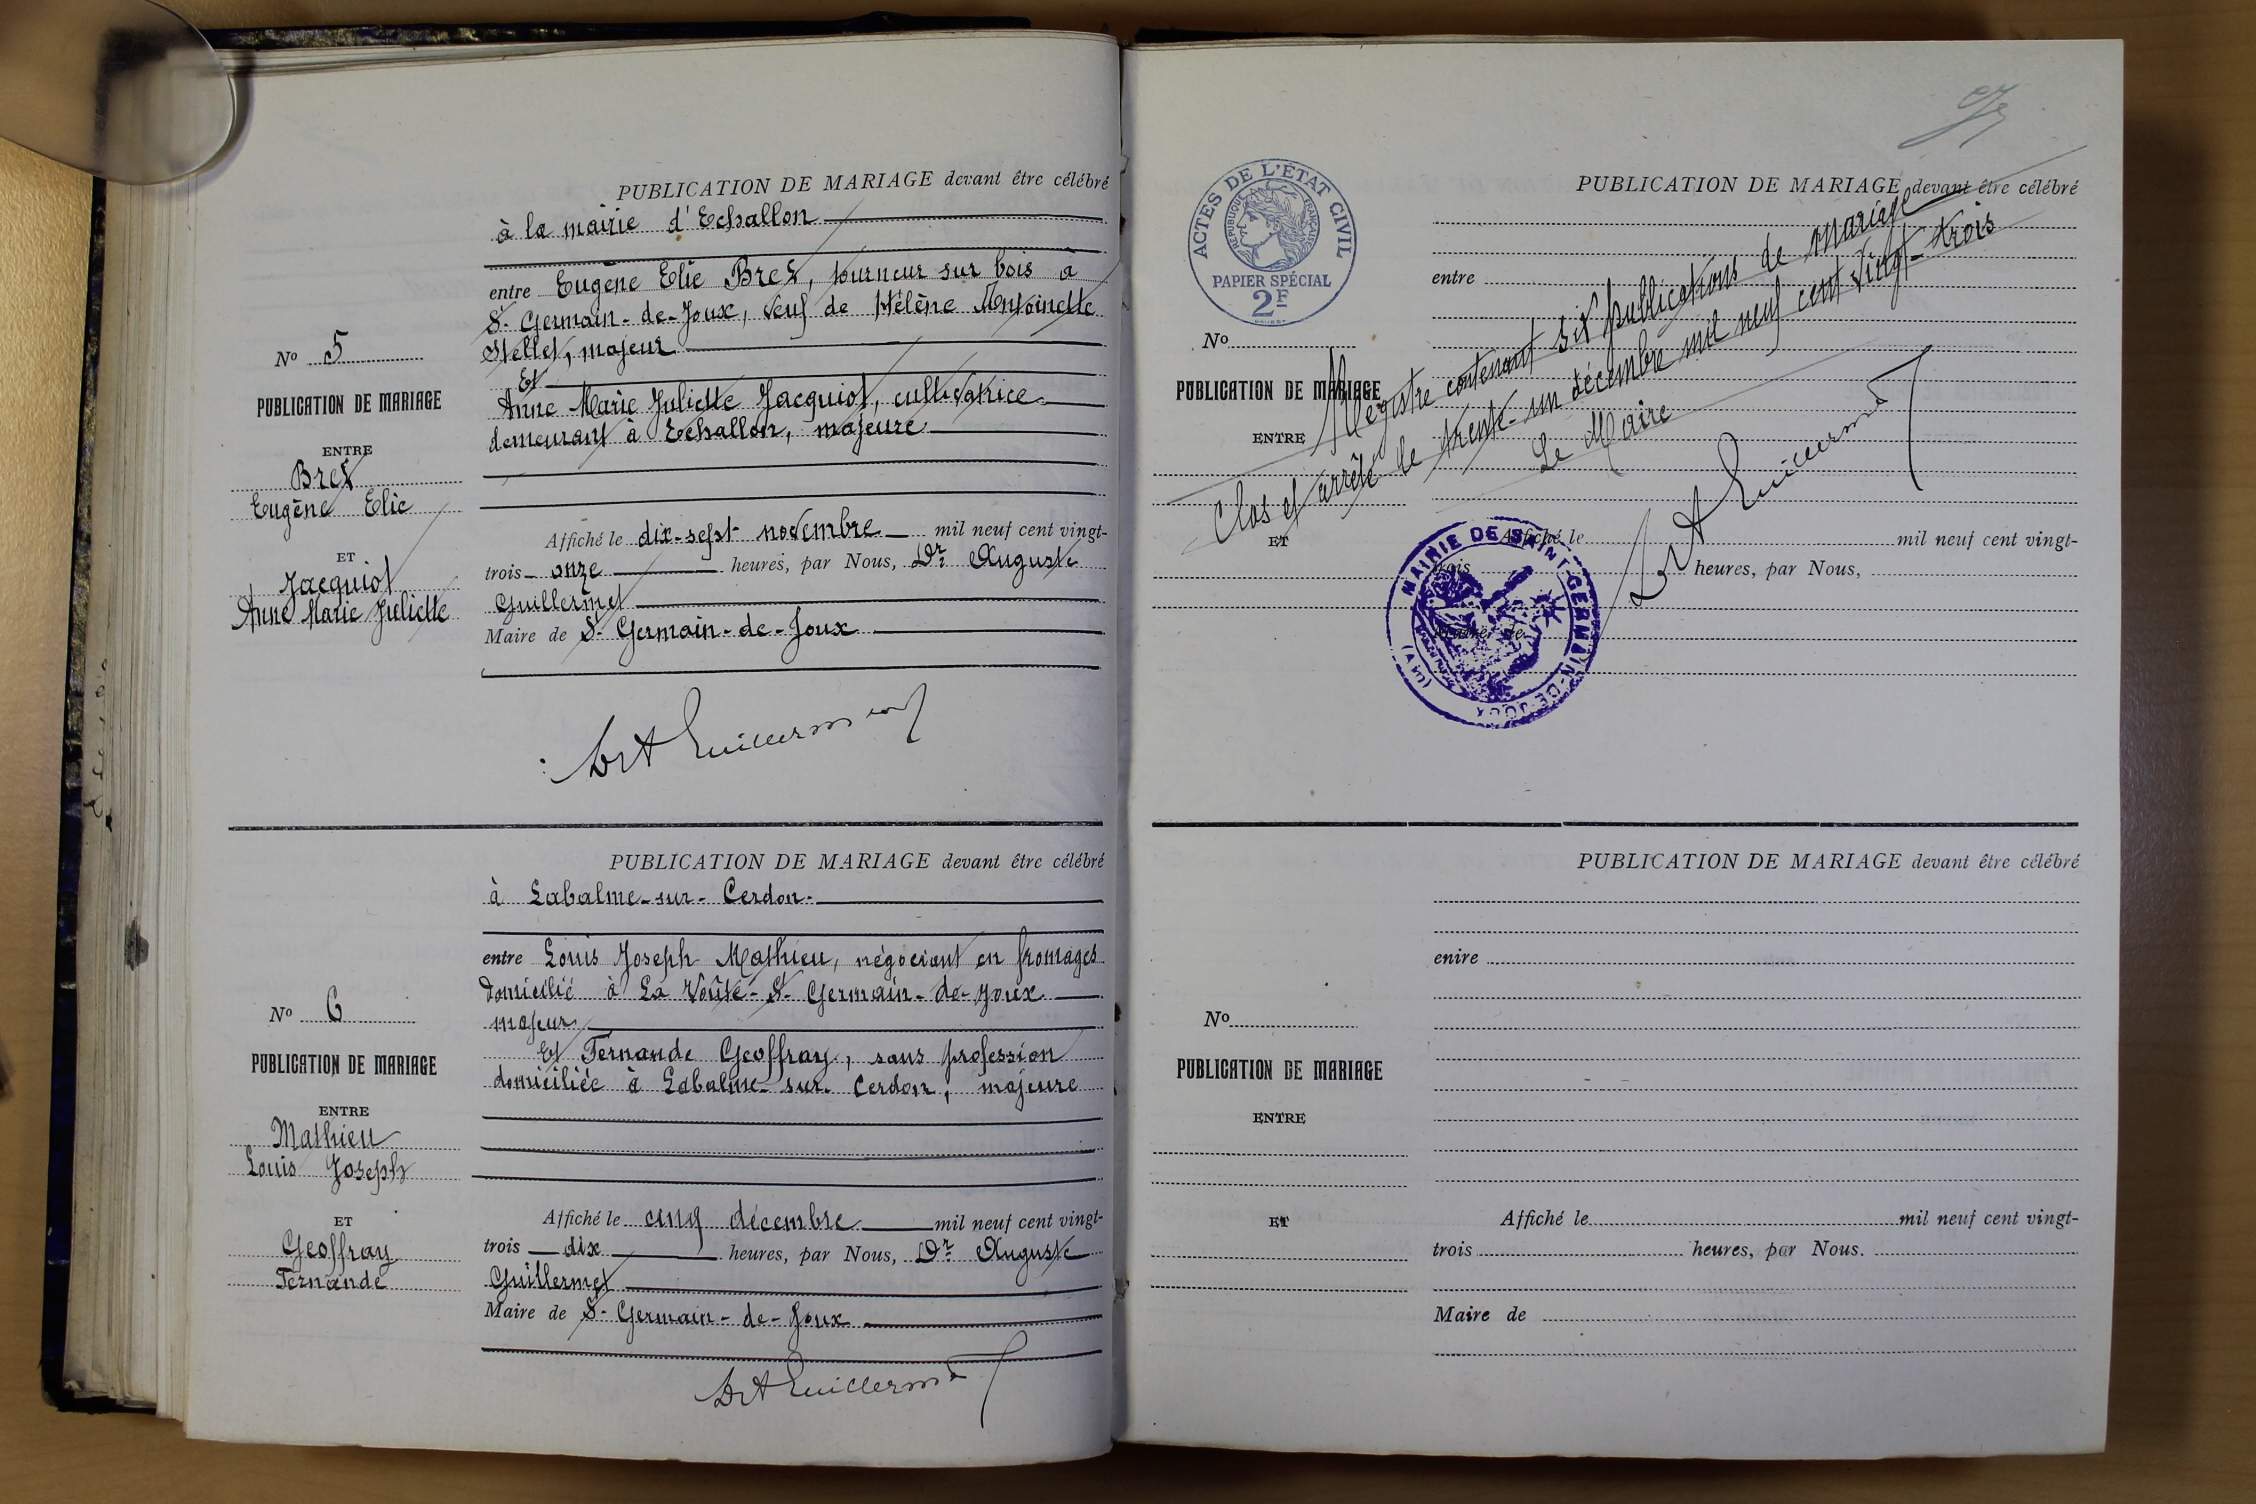 PUBLICATION DE MARIAGE devant être célébré
à la mairie d'Echallon
entre Eugène Elie Bret, tourneur sur bois à
St Germain-de-Joux, veuf de Hélène Antoinette
majeur
Et
Anne Marie Juliette Jacquiot, cultivatrice
demeurant à Echallon, majeure
No 5
PUBLICATION DE MARIAGE
ENTRE
Bret
Eugène Elie
ET
Jacquiot
Anne Marie Juliette
Affiché le dix-sept novembre mil neuf cent vingt-
trois onze heures, par Nous, Dr Auguste
Guillermet
Maire de St Germain-de-Joux
Dr A Guillermet
PUBLICATION DE MARIAGE devant être célébré
à Labalme-sur-Cerdon
entre Louis Joseph Mathieu, négociant en fromages
domicilié à La Voûte-St Germain-de-Joux
majeur
Et Fernande Geoffray, sans profession
domiciliée à Labalme-sur-Cerdon, majeure
No 6
PUBLICATION DE MARIAGE
ENTRE
Mathieu
Louis Joseph
ET
Geoffray
Fernande
Affiché le cinq décembre mil neuf cent vingt-
trois dix heures, par Nous, Dr Auguste
Guillermet
Maire de St Germain-de-Joux
Dr A Guillermet
ACTES DE L'ÉTAT CIVIL
RÉPUBLIQUE FRANÇAISE
PAPIER SPÉCIAL
2F
PUBLICATION DE MARIAGE devant être célébré
entre
No
PUBLICATION DE MARIAGE
ENTRE
ET
Registre contenant six publications de mariage
Clos et arrêté le trente-un décembre mil neuf cent vingt-trois
Le Maire
Dr A Guillermet
Affiché le mil neuf cent vingt-
trois heures, par Nous,
Maire de
MAIRIE DE SAINT-GERMAIN-DE-JOUX
(Ain)
PUBLICATION DE MARIAGE devant être célébré
enire
No
PUBLICATION DE MARIAGE
ENTRE
ET
Affiché le mil neuf cent vingt-
trois heures, par Nous.
Maire de